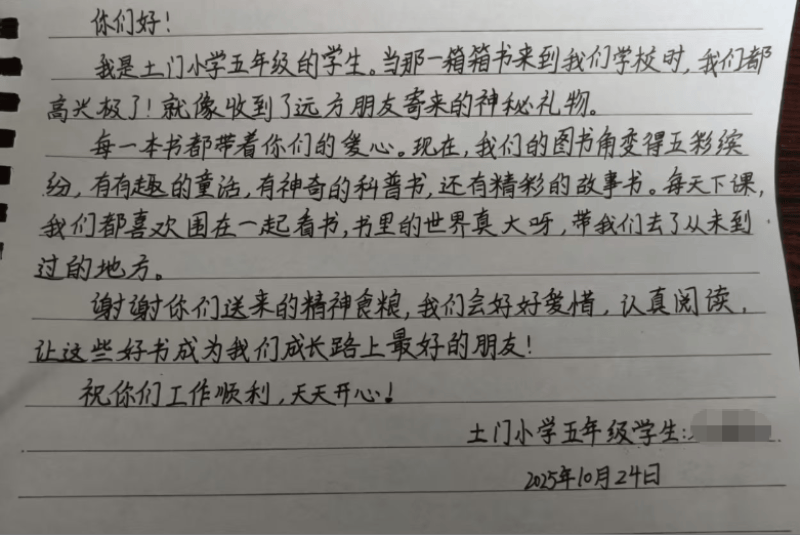 你们好！
我是土门小学五年级的学生。当那一箱箱书来到我们学校时，我们都
高兴极了！就像收到了远方朋友寄来的神秘礼物。
每一本书都带着你们的爱心。现在，我们的图书角变得五彩缤
纷，有有趣的童话，有神奇的科普书，还有精彩的故事书。每天下课，
我们都喜欢围在一起看书，书里的世界真大呀，带我们去了从未到
过的地方。
谢谢你们送来的精神食粮，我们会好好爱惜，认真阅读，
让这些好书成为我们成长路上最好的朋友！
祝你们工作顺利，天天开心！
土门小学五年级学生：
2025年10月24日